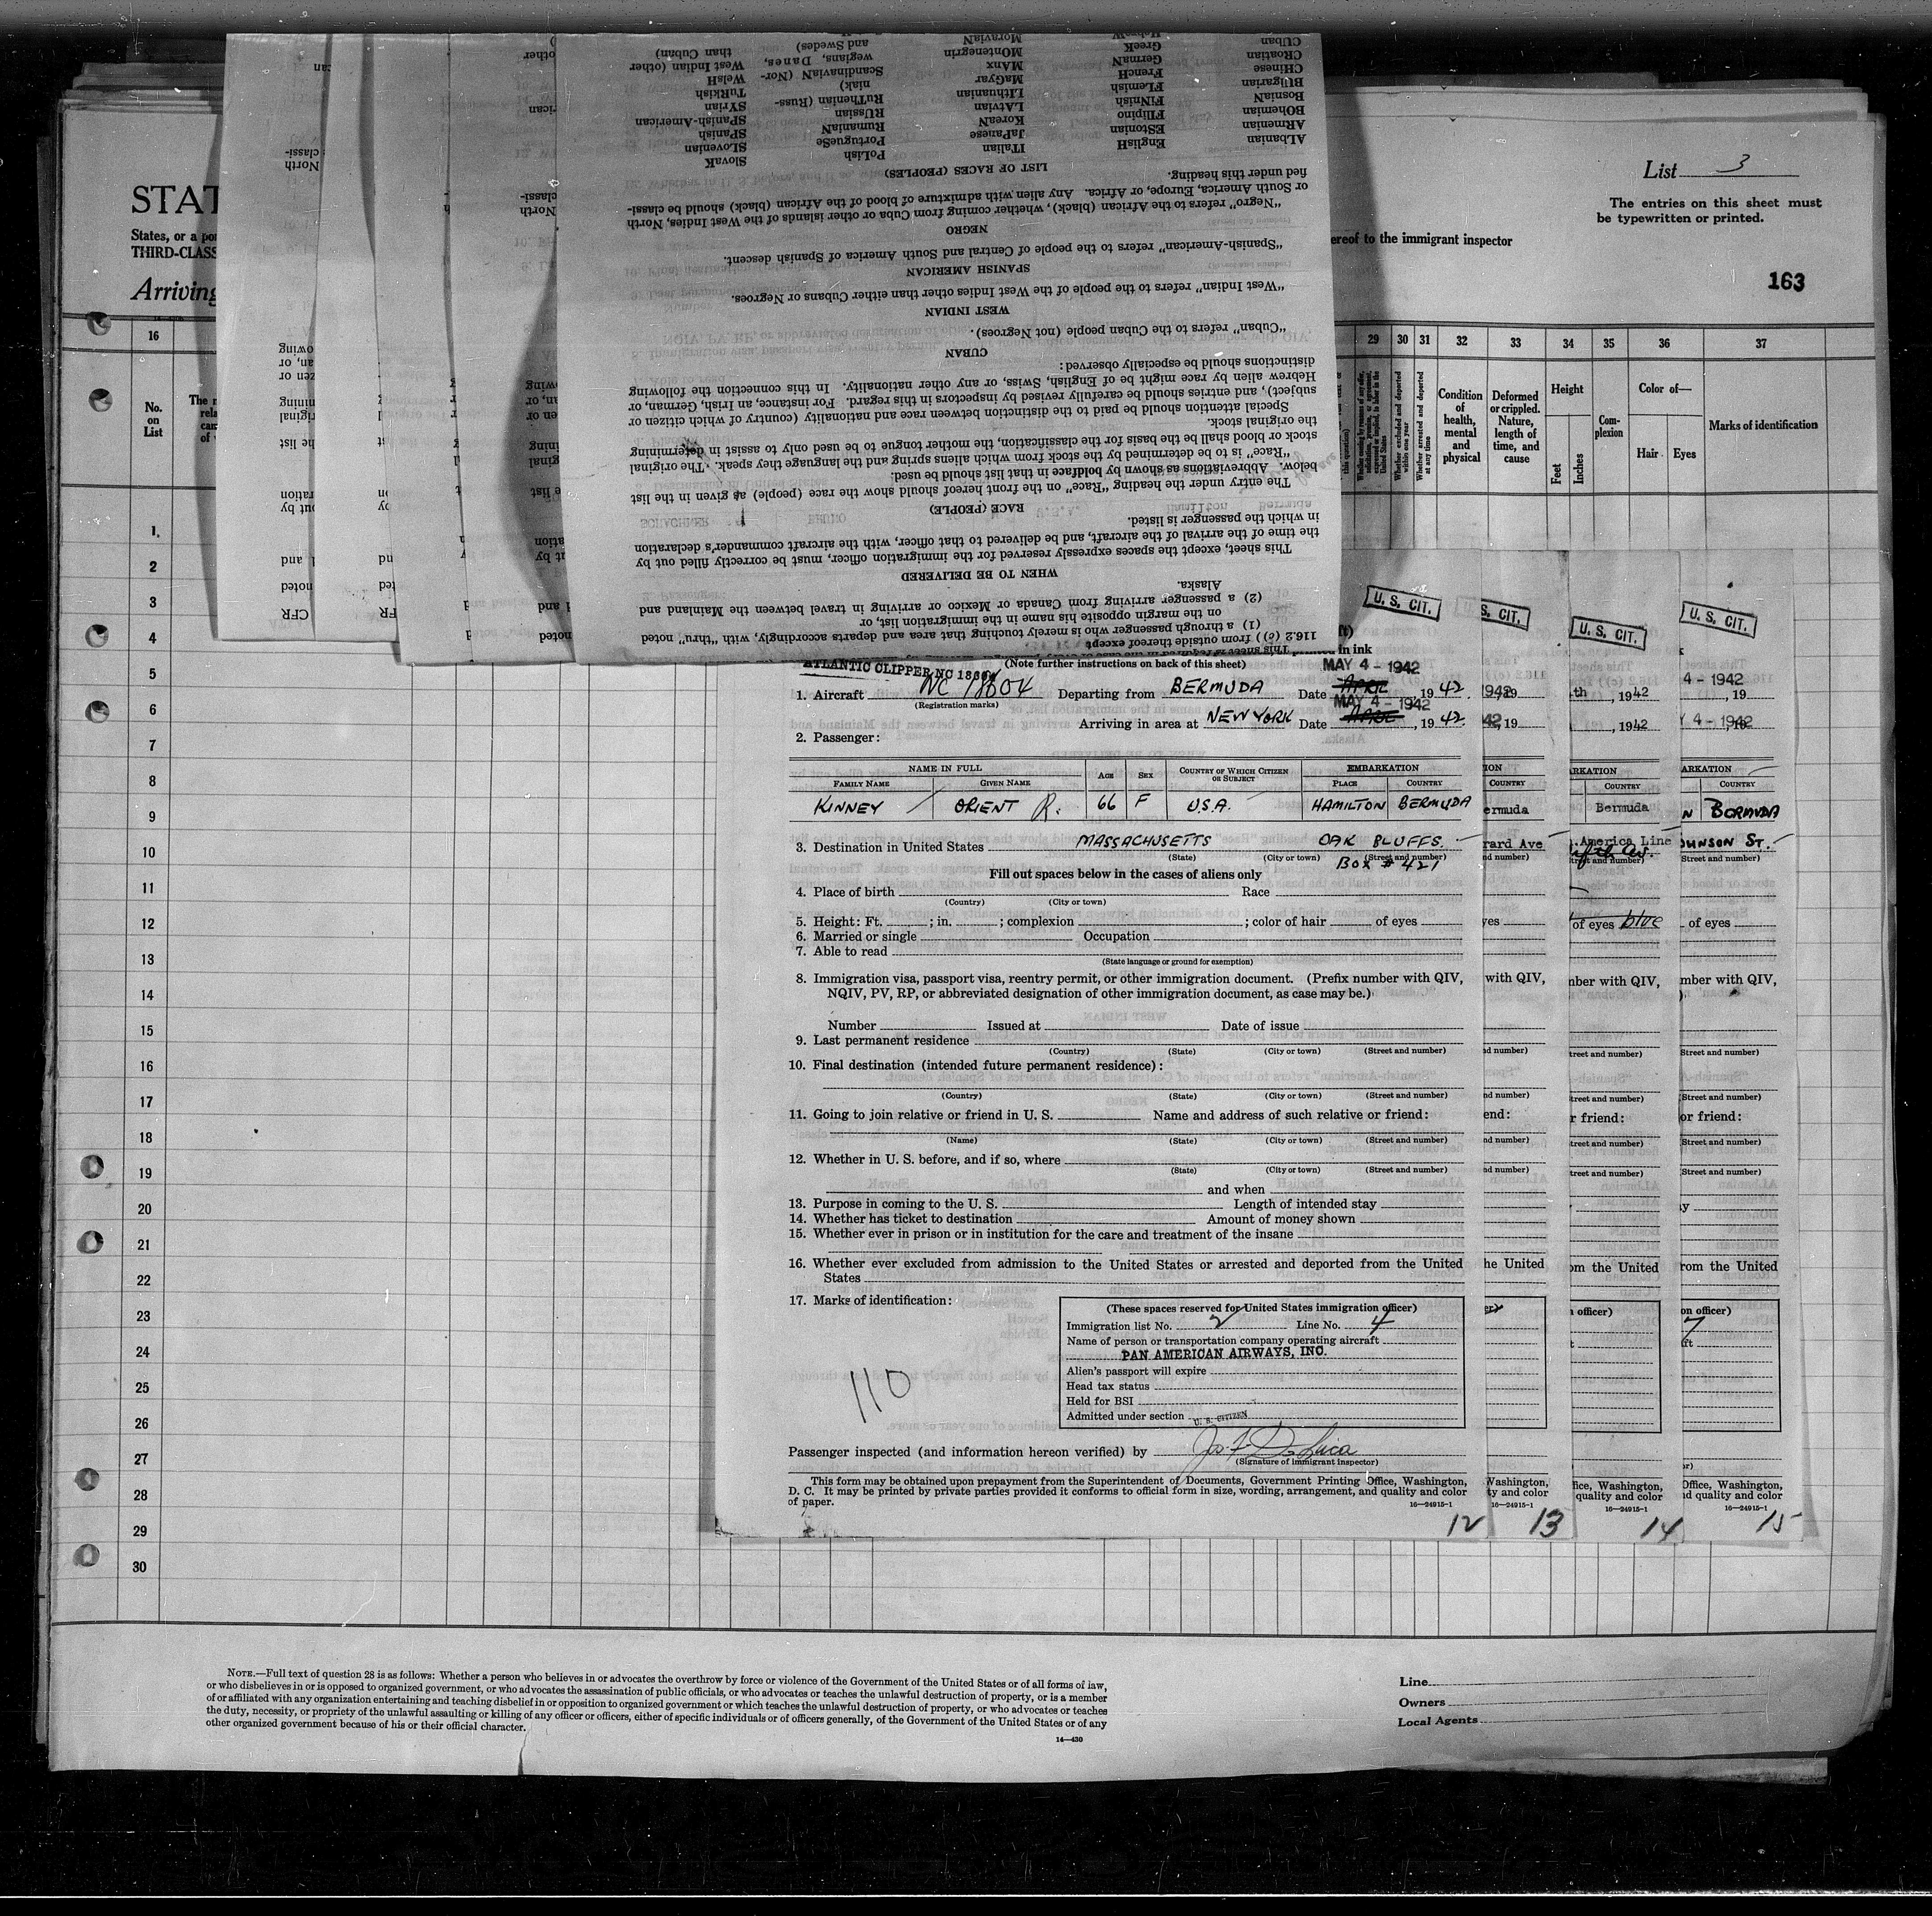 STAT
States, or a por
THIRD-CLASS
Arriving
List 3
The entries on this sheet must
be typewritten or printed.
ereof to the immigrant inspector
163
16
29 30 31 32 33 34 35 36 37
No.
on
List
Condition
of
health,
mental
and
physical
Deformed
or crippled.
Nature,
length of
time, and
cause
Height
Feet
Inches
Com-
plexion
Color of—
Hair
Eyes
Marks of identification
Whether excluded and deported
within one year
Whether arrested and deported
at any time
This sheet is required in the case of every
116.2 (c)) from outside thereof except
(1) a through passenger who is merely touching that area and departs accordingly, with "thru" noted
on the margin opposite his name in the immigration list, or
(2) a passenger arriving from Canada or Mexico or arriving in travel between the Mainland and
Alaska.
WHEN TO BE DELIVERED
This sheet, except the spaces expressly reserved for the immigration officer, must be correctly filled out by
the time of the arrival of the aircraft, and be delivered to that officer, with the aircraft commander's declaration
in which the passenger is listed.
RACE (PEOPLE)
The entry under the heading "Race" on the front hereof should show the race (people) as given in the list
below. Abbreviations as shown by boldface in that list should be used.
"Race" is to be determined by the stock from which aliens spring and the language they speak. The original
stock or blood shall be the basis for the classification, the mother tongue to be used only to assist in determining
the original stock.
Special attention should be paid to the distinction between race and nationality (country of which citizen or
subject), and entries should be carefully revised by inspectors in this regard. For instance, an Irish, German, or
Hebrew alien by race might be of English, Swiss, or any other nationality. In this connection the following
distinctions should be especially observed:
CUBAN
"Cuban" refers to the Cuban people (not Negroes).
WEST INDIAN
"West Indian" refers to the people of the West Indies other than either Cubans or Negroes.
SPANISH AMERICAN
"Spanish-American" refers to the people of Central and South America of Spanish descent.
NEGRO
"Negro" refers to the African (black), whether coming from Cuba or other islands of the West Indies, North
or South America, Europe, or Africa. Any alien with admixture of blood of the African (black) should be classi-
fied under this heading.
LIST OF RACES (PEOPLES)
ALbanian EnglisH ITalian PoLish SlovaK
ARmenian EStonian JaPanese PortugueSe SLOvenian
BOhemian FIlipino KoreaN RumaniaN SPanish
BosniaN FINnish LAtvian RUssian SPanish-American
BUlgarian FLemish LIthuanian RuThenian (Russ- SYrian
CHinese FrencH MaGyar niak) TuRkish
CRoatian GermaN MAnx ScandinaviaN (Nor- WelsH
CUban GreeK MOntenegrin wegians, Danes, West Indian (other
HebreW MoraviaN and Swedes) than Cuban)
U. S. CIT.
S. CIT.
U. S. CIT.
U. S. CIT.
in ink
ATLANTIC CLIPPER NC 18604
(Note further instructions on back of this sheet)
MAY 4 - 1942
1. Aircraft NC 18604 Departing from BERMUDA Date APRIL, 1942
(Registration marks)
MAY 4 - 1942
Arriving in area at NEW YORK Date APRIL, 1942
2. Passenger:
NAME IN FULL AGE SEX COUNTRY OF WHICH CITIZEN OR SUBJECT EMBARKATION
FAMILY NAME GIVEN NAME PLACE COUNTRY
KINNEY ORIENT R. 66 F U.S.A. HAMILTON BERMUDA
3. Destination in United States MASSACHUSETTS OAK BLUFFS.
(State) (City or town) (Street and number)
BOX #421
Fill out spaces below in the cases of aliens only
4. Place of birth Race
(Country) (City or town)
5. Height: Ft. ; in. ; complexion ; color of hair of eyes
6. Married or single Occupation
7. Able to read
(State language or ground for exemption)
8. Immigration visa, passport visa, reentry permit, or other immigration document. (Prefix number with QIV,
NQIV, PV, RP, or abbreviated designation of other immigration document, as case may be.)
Number Issued at Date of issue
9. Last permanent residence
(Country) (State) (City or town) (Street and number)
10. Final destination (intended future permanent residence):
(Country) (State) (City or town) (Street and number)
11. Going to join relative or friend in U. S. Name and address of such relative or friend:
(Name) (State) (City or town) (Street and number)
12. Whether in U. S. before, and if so, where
(State) (City or town) (Street and number)
and when
13. Purpose in coming to the U. S. Length of intended stay
14. Whether has ticket to destination Amount of money shown
15. Whether ever in prison or in institution for the care and treatment of the insane
16. Whether ever excluded from admission to the United States or arrested and deported from the United
States
17. Marks of identification:
(These spaces reserved for United States immigration officer)
Immigration list No. 2 Line No. 4
Name of person or transportation company operating aircraft
PAN AMERICAN AIRWAYS, INC.
Alien's passport will expire
Head tax status
Held for BSI
Admitted under section U. S. CITIZEN
110
Passenger inspected (and information hereon verified) by Jos. F. DeLuca
(Signature of immigrant inspector)
This form may be obtained upon prepayment from the Superintendent of Documents, Government Printing Office, Washington,
D. C. It may be printed by private parties provided it conforms to official form in size, wording, arrangement, and quality and color
of paper.
16—24915-1
12
13
14
15
1942
ermuda
rard Ave
th, 1942
, 1942
Bermuda
America Line
of eyes blue
4 - 1942
Y 4 - 1942
COUNTRY
N BERMUDA
OHNSON ST.
of eyes
7
1
2
3
4
5
6
7
8
9
10
11
12
13
14
15
16
17
18
19
20
21
22
23
24
25
26
27
28
29
30
NOTE.—Full text of question 28 is as follows: Whether a person who believes in or advocates the overthrow by force or violence of the Government of the United States or of all forms of law,
or who disbelieves in or is opposed to organized government, or who advocates the assassination of public officials, or who advocates or teaches the unlawful destruction of property, or is a member
of or affiliated with any organization entertaining and teaching disbelief in or opposition to organized government or which teaches the unlawful destruction of property, or who advocates or teaches
the duty, necessity, or propriety of the unlawful assaulting or killing of any officer or officers, either of specific individuals or of officers generally, of the Government of the United States or of any
other organized government because of his or their official character.
14—430
Line
Owners
Local Agents